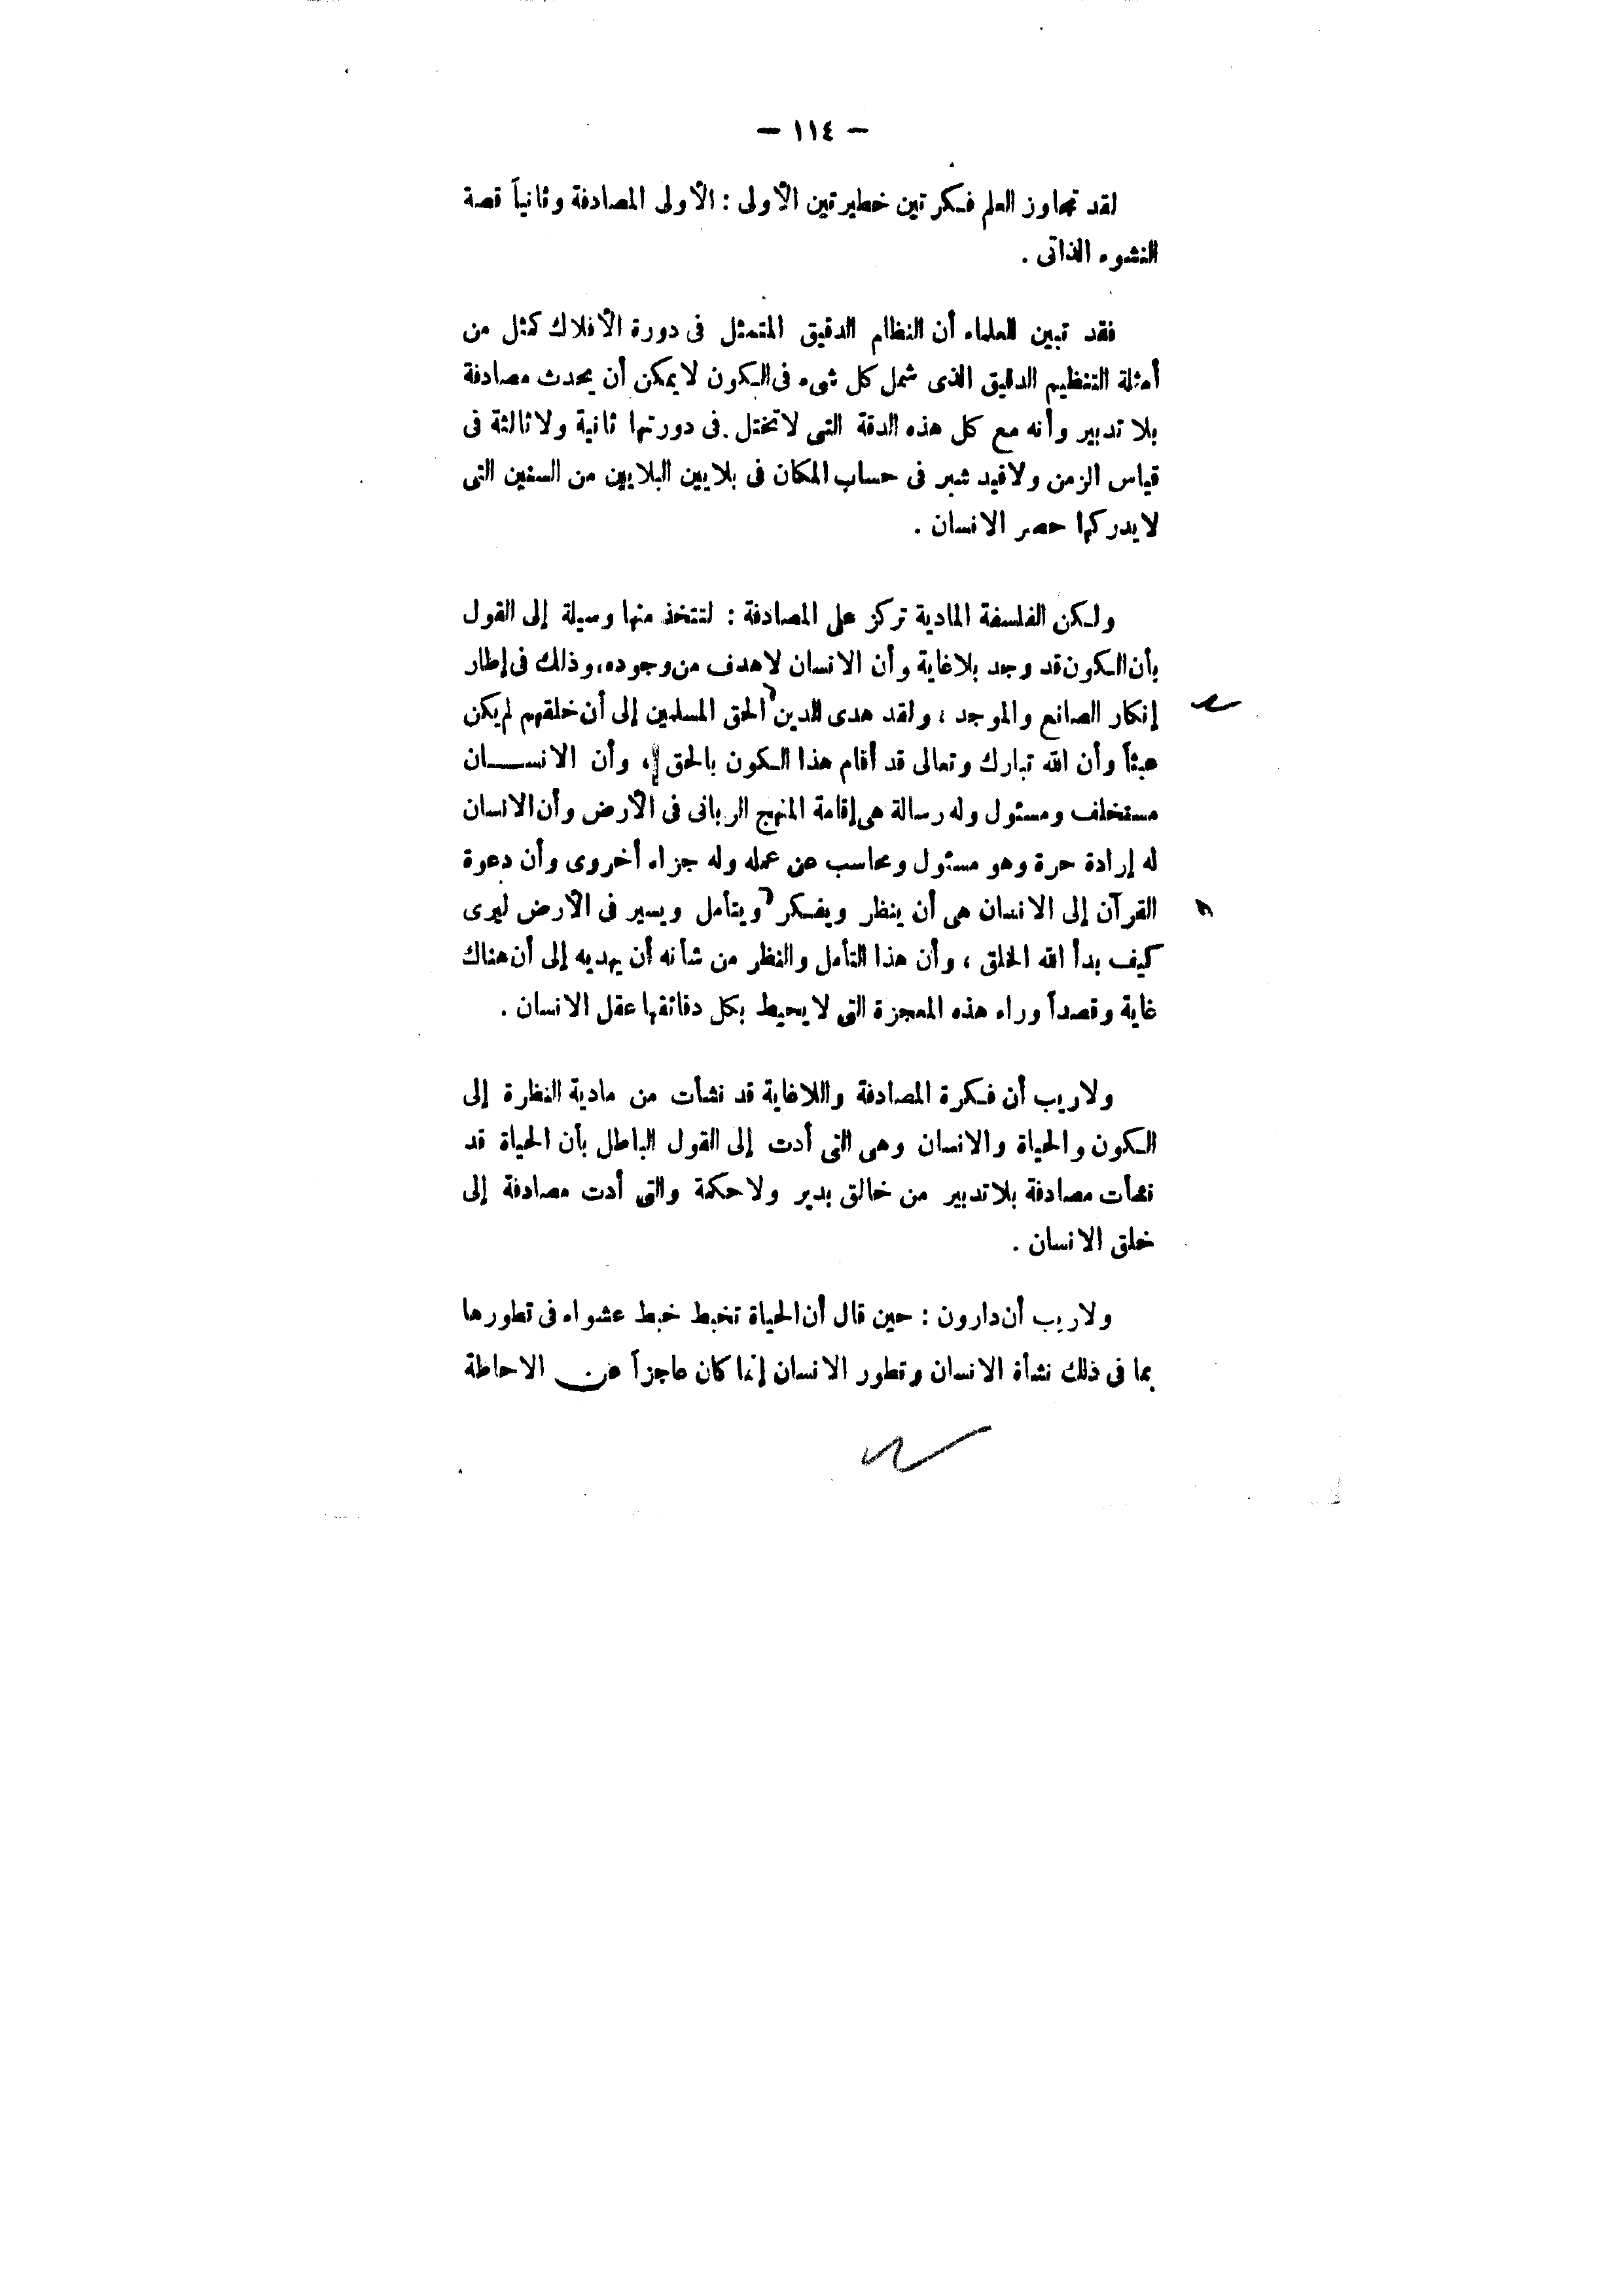 — ١١٤ —
لقد تجاوز العلم فكرتين خطيرتين الأولى : الأولى المصادفة وثانياً قصة
النشوء الذاتى .
فقد تبين للعلماء أن النظام الدقيق المتمثل فى دورة الأفلاك كمثل من
أمثلة التنظيم الدقيق الذى شمل كل شىء فى الكون لا يمكن أن يحدث مصادفة
بلا تدبير وأنه مع كل هذه الدقة التى لا تختل . فى دورتها ثانية ولا ثالثة فى
قياس الزمن ولا قيد شبر فى حساب المكان فى بلايين البلايين من السنين التى
لا يدركها حصر الانسان .
ولكن الفلسفة المادية تركز على المصادفة : لتتخذ منها وسيلة إلى القول
بأن الكون قد وجد بلا غاية وأن الانسان لا هدف من وجوده، وذلك فى إطار
إنكار الصانع والموجد ، ولقد هدى الدين الحق المسلمين إلى أن خلقهم لم يكن
عبثاً وأن الله تبارك وتعالى قد أقام هذا الكون بالحق ، وأن الانسان
مستخلف ومسئول وله رسالة هى إقامة المنهج الربانى فى الأرض وأن الانسان
له إرادة حرة وهو مسئول ومحاسب عن عمله وله جزاء أخروى وأن دعوة
القرآن إلى الانسان هى أن ينظر ويفكر ويتأمل ويسير فى الأرض ليرى
كيف بدأ الله الخلق ، وأن هذا التأمل والنظر من شأنه أن يهديه إلى أن هناك
غاية وقصداً وراء هذه المعجزة التى لا يحيط بكل دقائقها عقل الانسان .
ولا ريب أن فكرة المصادفة واللاغاية قد نشأت من مادية النظرة إلى
الكون والحياة والانسان وهى التى أدت إلى القول الباطل بأن الحياة قد
نشأت مصادفة بلا تدبير من خالق بدير ولا حكمة والتى أدت مصادفة إلى
خلق الانسان .
ولا ريب أن دارون : حين قال أن الحياة تخبط خبط عشواء فى تطورها
بما فى ذلك نشأة الانسان وتطور الانسان إنما كان عاجزاً عن الاحاطة